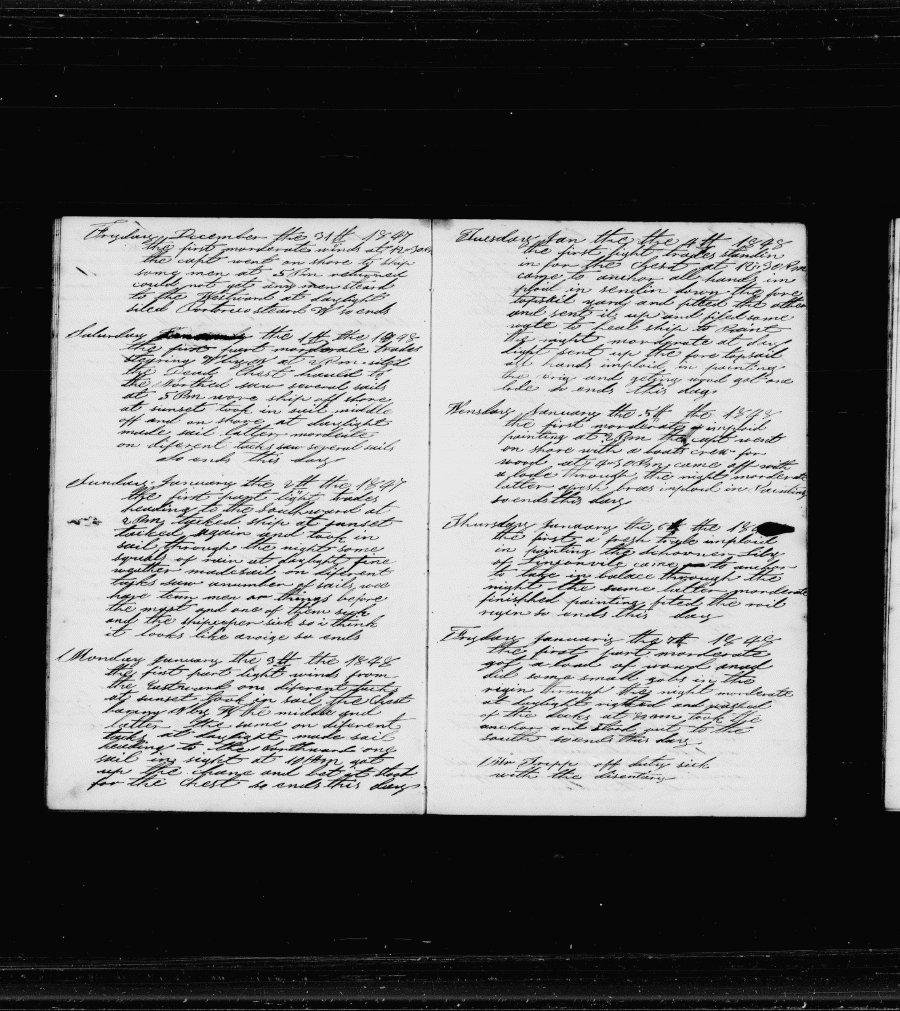 Fryday December the 31st 1897
the first morderate winds at 12.30
the capt went on shore to ship
some men at 5 Pm returned
could not get any men steard
to the Westward at daylight
siled Portorico steard W so ends
Saturday the 1st the 1898
the first part morderate trades
stearing at 2 Pm sited
the Dead Chest hauld to
the Northed saw several sails
at 5 Pm wore ship off shore
at sunset took in sail middle
off and on shore at daylight
made sail latter morderate
on diferent tacks saw several sails
so ends this day
Sunday January the 2th the 1897
the first part light trades
heading to the Southward at
2 Pm tacked ship at sunset
tacked again and took in
sail through the night some
squals of rain at daylight fine
weather made sail on diferent
tacks saw anumber of sails we
have men or things before
the mast and one of them sick
and the shipceper sick so i think
it looks like avoige so ends
Monday January the 3th the 1898
the first part light winds from
the Eastward on diferent tacks
at sunset took in sail the Chest
baring the middle and
latter the same on diferent
tacks at daylight made sail
heading to the Northward one
sail in sight at 10 Am got
up the change and let it stood
for the Chest so ends this day
Tuesday Jan the the 4th 1898
the first light trades standin
in for the Chest at 12.30 Pm
came to anchor all hands im
ploid in sendin down the fore
topsail yard and fited the other
and sent it up and fited some
to heal ship to Paint
the night morderate at day
light sent up the fore topsail
all hands imploid in painting
the and geting wood got one
lode so ends this day
Wensday January the 5th the 1898
the first morderate imploid
painting at 2 Pm the capt went
on shore with a boats crew for
wood at 4.30 Pm came off with
a lode through the night morderate
latter fresh bres imploid in Painting
so ends this day
Thursday January the 6th the 189
the first a fresh imploid
in painting the schooner Lily
of came to anchor
to take in balace through the
night the same latter morderate
finished painting fited the
rigin so ends this day
Fryday January the 7th 1898
the first part morderate
got a load of wood and
did some small gobs in the
rigin through the night morderate
at daylight and washed
of the decks at took the
anchor and stood out to the
south so ends this day
Mr off duty sick
with the disentary